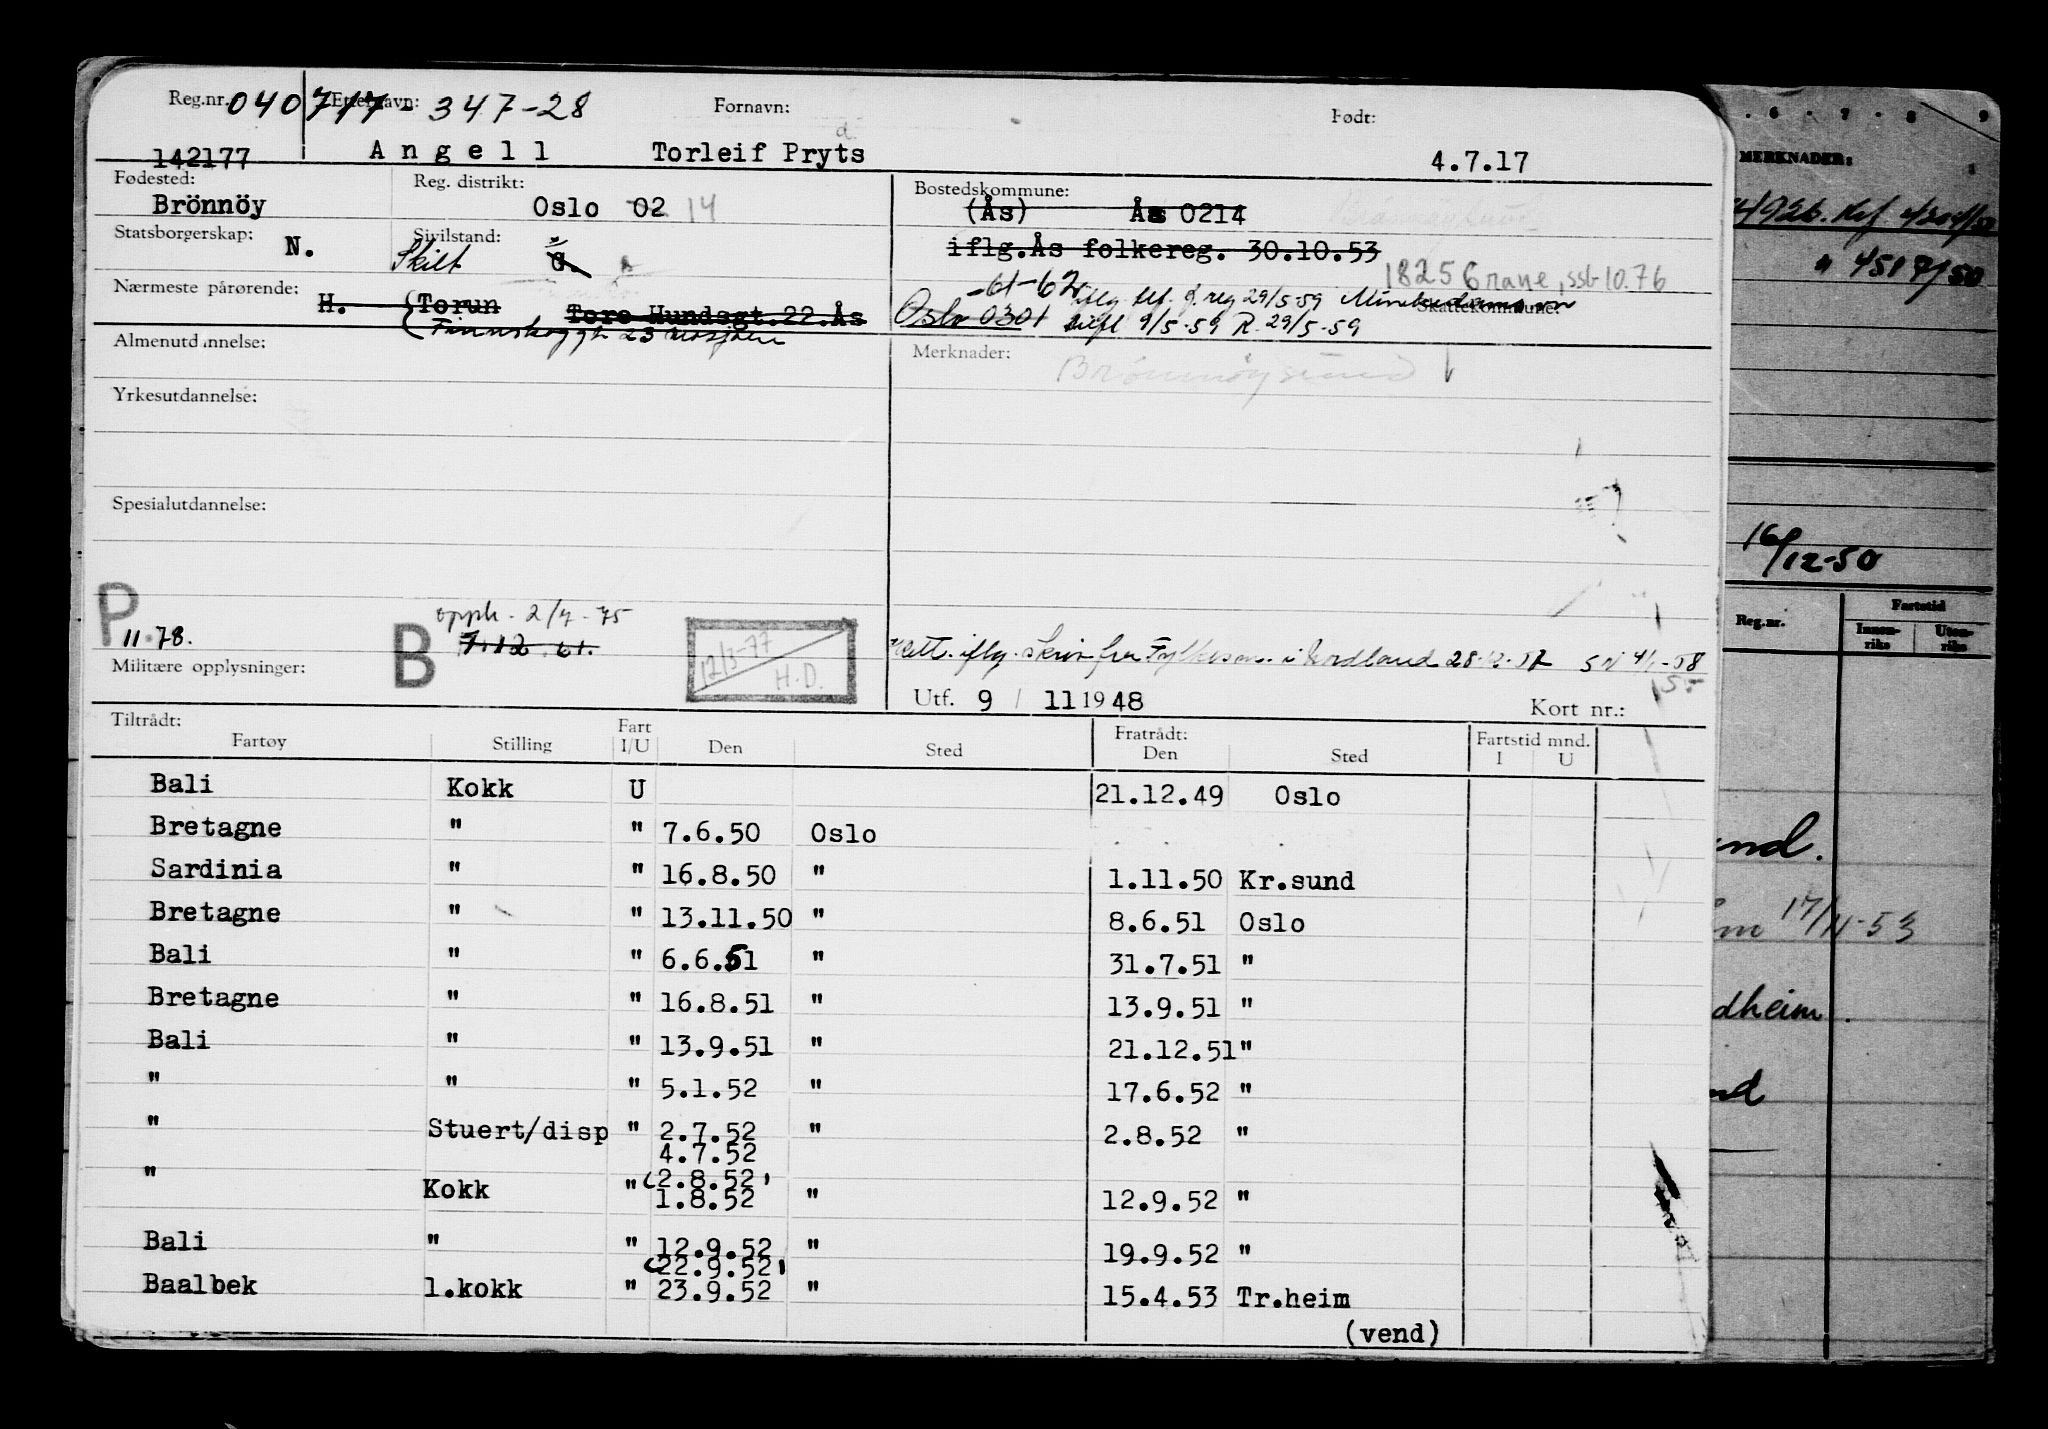 Reg.nr. 040717 - 347-28 Etternavn: Fornavn: Født:
142177 Angell Torleif Pryts d. 4.7.17
Fødested: Brönnöy Reg. distrikt: Oslo 02 14 Bostedskommune: (Ås) Ås 0214
Statsborgerskap: N. Sivilstand: Skilt G. iflg.Ås folkereg. 30.10.53
-61-62 1825 Grane, ssb 10.76
Nærmeste pårørende: H. (Torun Tore Hundsgt.22.Ås Oslo 0301 29/5-59 Skattekommune:
23 9/5-59 R. 29/5-59
Almenutdannelse: Merknader: Brønnøysund
Yrkesutdannelse:
Spesialutdannelse:
P 11.78. B opph. 2/7-75
7.12.61.
12/3-77 H.D.
iflg. skriv fra i Nordland 28.12.57 4/1-58
Militære opplysninger: Utf. 9 / 11 1948 Kort nr.: 15.-
Tiltrådt: Fart Fratrådt: Fartstid mnd.
Fartøy Stilling I/U Den Sted Den Sted I U
Bali Kokk U 21.12.49 Oslo
Bretagne " " 7.6.50 Oslo
Sardinia " " 16.8.50 " 1.11.50 Kr.sund
Bretagne " " 13.11.50 " 8.6.51 Oslo
Bali " " 6.6.51 " 31.7.51 "
Bretagne " " 16.8.51 " 13.9.51 "
Bali " " 13.9.51 " 21.12.51 "
" " " 5.1.52 " 17.6.52 "
" Stuert/disp " 2.7.52 " 2.8.52 "
4.7.52
" Kokk " (2.8.52)
1.8.52 " 12.9.52 "
Bali " " 12.9.52 " 19.9.52 "
(22.9.52)
Baalbek 1.kokk " 23.9.52 " 15.4.53 Tr.heim
(vend)
6 - 7 - 8 9
MERKNADER:
" 4517/50
16/12-50
Reg.nr. Fartstid
Innen-riks Uten-riks
und.
17/11-53
dheim.
nd